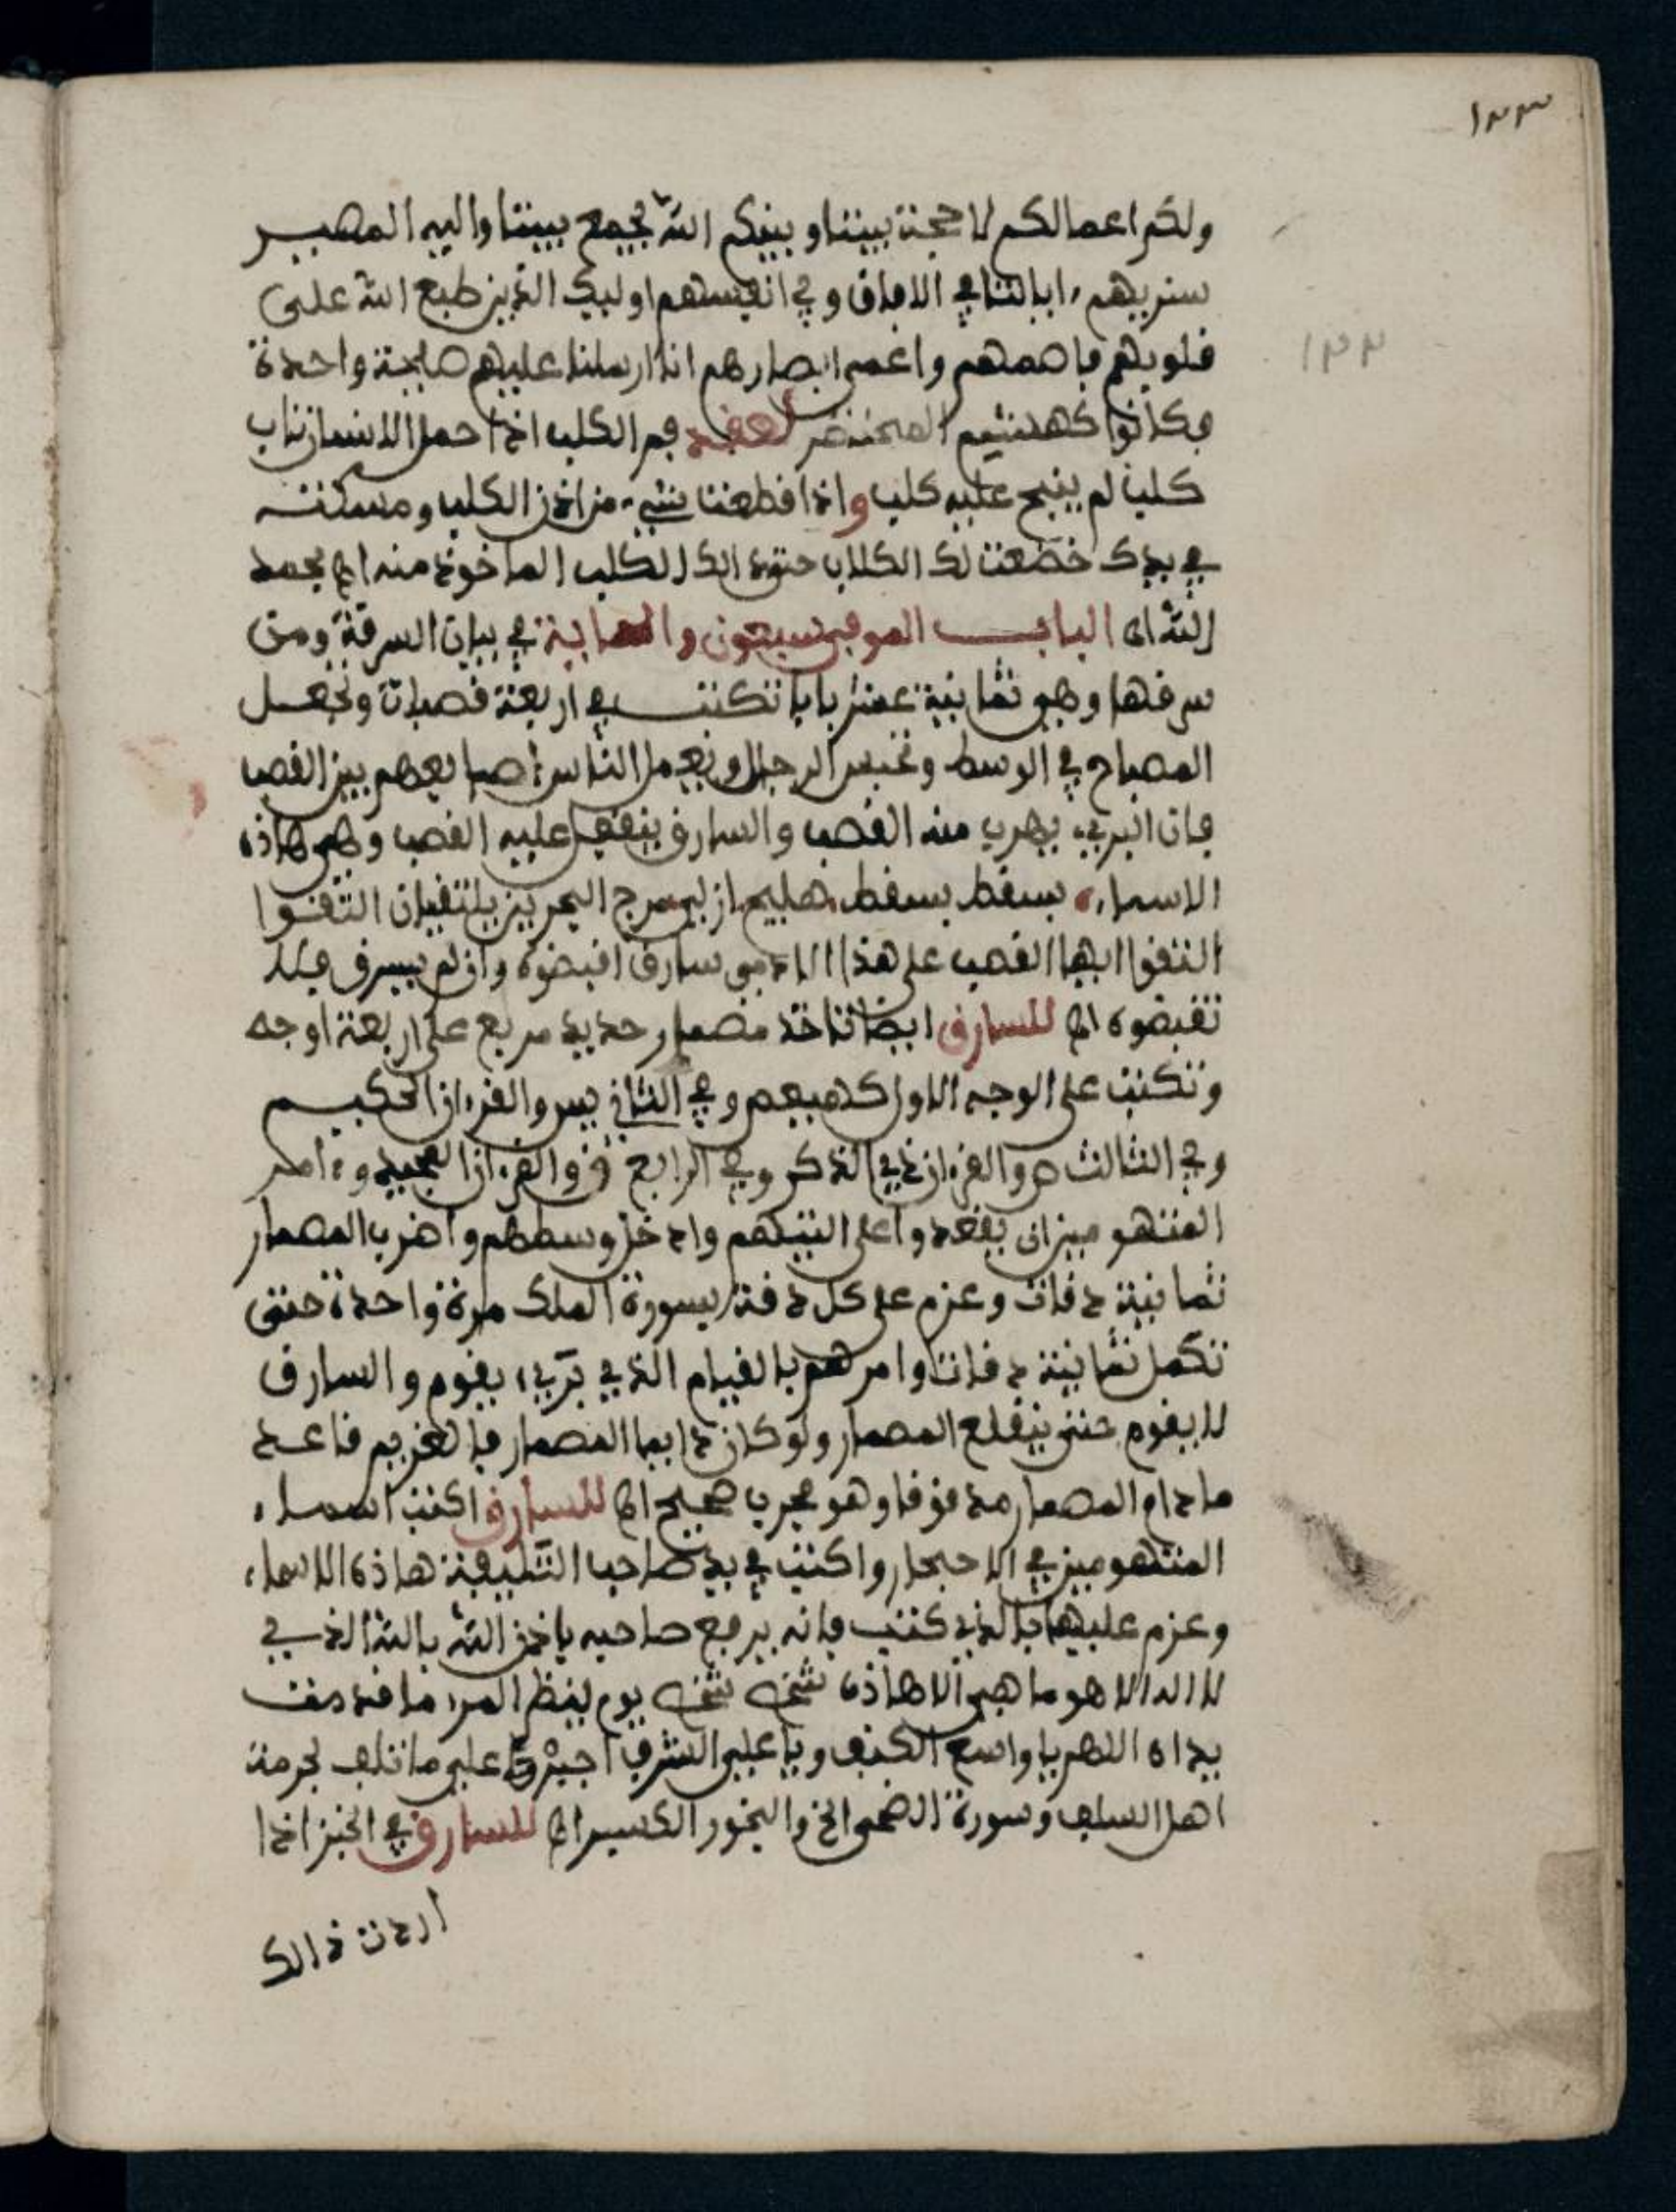 ١٣٣
ولكم اعمالكم لا حجة بيننا وبينكم الله يجمع بيننا واليه المصير
سنريهم ءاياتنا في الافاق وفي انفسهم اوليك الذين طبع الله على
١٣٣
قلوبهم فاصمهم واعمى ابصارهم انا ارسلنا عليهم صايحة واحدة
فكانوا كهشيم المحتضر لعقد فم الكلب اذا حمل الانسان ناب
كلب لم ينبح عليه كلب واذا قطعت شيء من اذن الكلب ومسكته
في يدك خضعت لك الكلاب حتى الكلب الماخوذ منه اه بحمد
الله اه الباب الموفي سبعون في بيان السرقة ومن
سرقها وهو ثمانية عشر بابا تكتب في اربعة قصبات وتجعل
المصباح في الوسط وتحبس الرجال ويعمل الناس اصابعهم بين القصب
فان البريء يهرب منه القصب والسارق ينقفل عليه القصب وهي هاذه
الاسماء بسقط بسقط صليح ازلي مرج البحرين يلتقيان التقوا
التقوا ايها القصب على هذا الادمي سارق اقبضوه وان لم يسرق فلا
تقبضوه اه للسارق ايضا تاخذ مصمار حديد مربع على اربعة اوجه
وتكتب على الوجه الاول كهيعص وفي الثاني يس والقرءان الحكيم
وفي الثالث ص والقرءان ذي الذكر وفي الرابع ق والقرءان المجيد وءامر
المتهومين ان يقعدوا على وادخل وسطهم واضرب المصمار
ثمانية دقات وعزم على كل دقة بسورة الملك مرة واحدة حتى
تكمل ثمانية دقات وامرهم بالقيام الذي بريء يقوم والسارق
لا يقوم حتى ينقلع المصمار ولو كان دايما المصمار فالغريم قاعد
مادام المصمار مدقوقا وهو مجرب صحيح اه للسارق اكتب اسماء
المتهومين في الاحجار واكتب في يد صاحب التليفة هاذه الاسماء
وعزم عليها بالذي كتب فانه يرفع صاحبه باذن الله بالله الذي
لا اله الا هو ما هي الا هاذه يوم ينظر المرء ما قدمت
يداه اللهم يا واسع الكنف ويا علي الشرف اجبرني على ما تلف بحرمة
اهل السلف وسورة الضحى الخ والبخور الكسبر اه للسارق في الخبز اذا
اردت ذالك